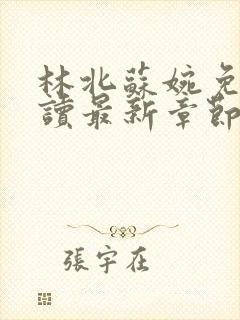 林北蘇婉免
讀最新章節
張宇在